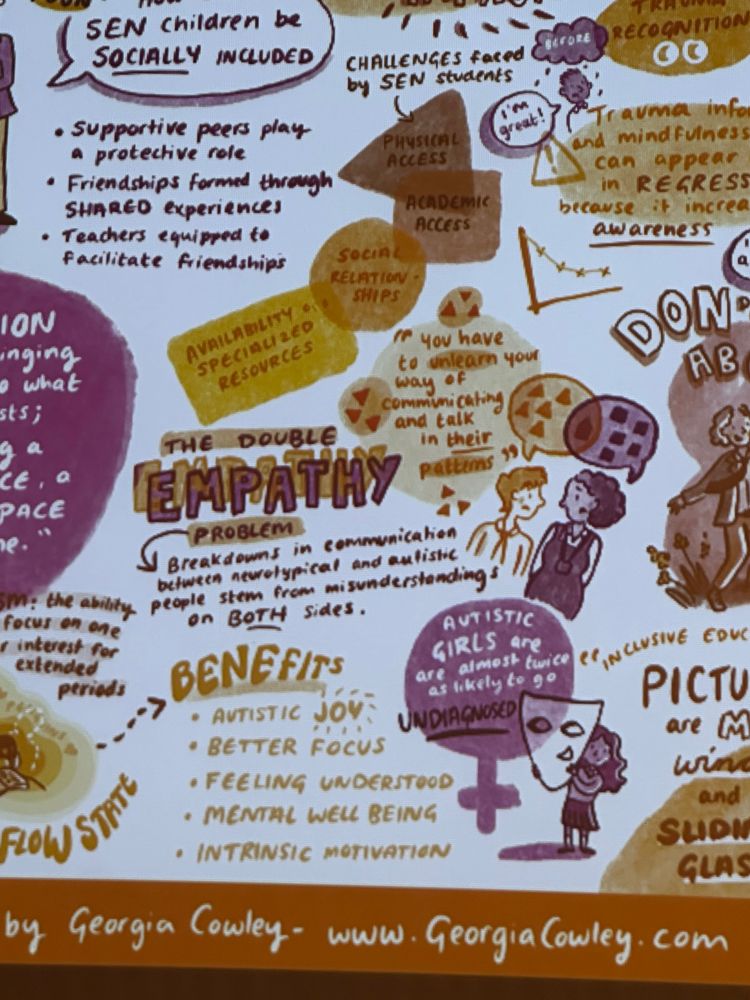 SEN children be
SOCIALLY INCLUDED
• Supportive peers play
a protective role
• Friendships formed through
SHARED experiences
• Teachers equipped to
facilitate friendships
CHALLENGES faced
by SEN students
PHYSICAL
ACCESS
ACADEMIC
ACCESS
SOCIAL
RELATION-
SHIPS
AVAILABILITY OF
SPECIALIZED
RESOURCES
BEFORE
I'm
great!
TRAUMA
RECOGNITION
Trauma info
and mindfulness
can appear
in REGRESS
because it increa
awareness
ION
inging
o what
sts;
g a
CE, a
PACE
me."
"you have
to unlearn your
way of
communicating
and talk
in their
patterns"
THE DOUBLE
EMPATHY
PROBLEM
Breakdowns in communication
between neurotypical and autistic
people stem from misunderstandings
on BOTH sides.
DON'
AB
SM: the ability
focus on one
r interest for
extended
periods
FLOW STATE
BENEFITS
• AUTISTIC JOY
• BETTER FOCUS
• FEELING UNDERSTOOD
• MENTAL WELL BEING
• INTRINSIC MOTIVATION
AUTISTIC
GIRLS are
are almost twice
as likely to go
UNDIAGNOSED
"INCLUSIVE EDUC
PICTU
are M
wind
and
SLIDIN
GLAS
by Georgia Cowley- www.GeorgiaCowley.com